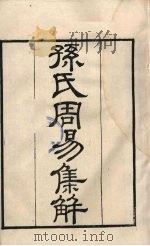 孫氏周易集解
mtoou.info